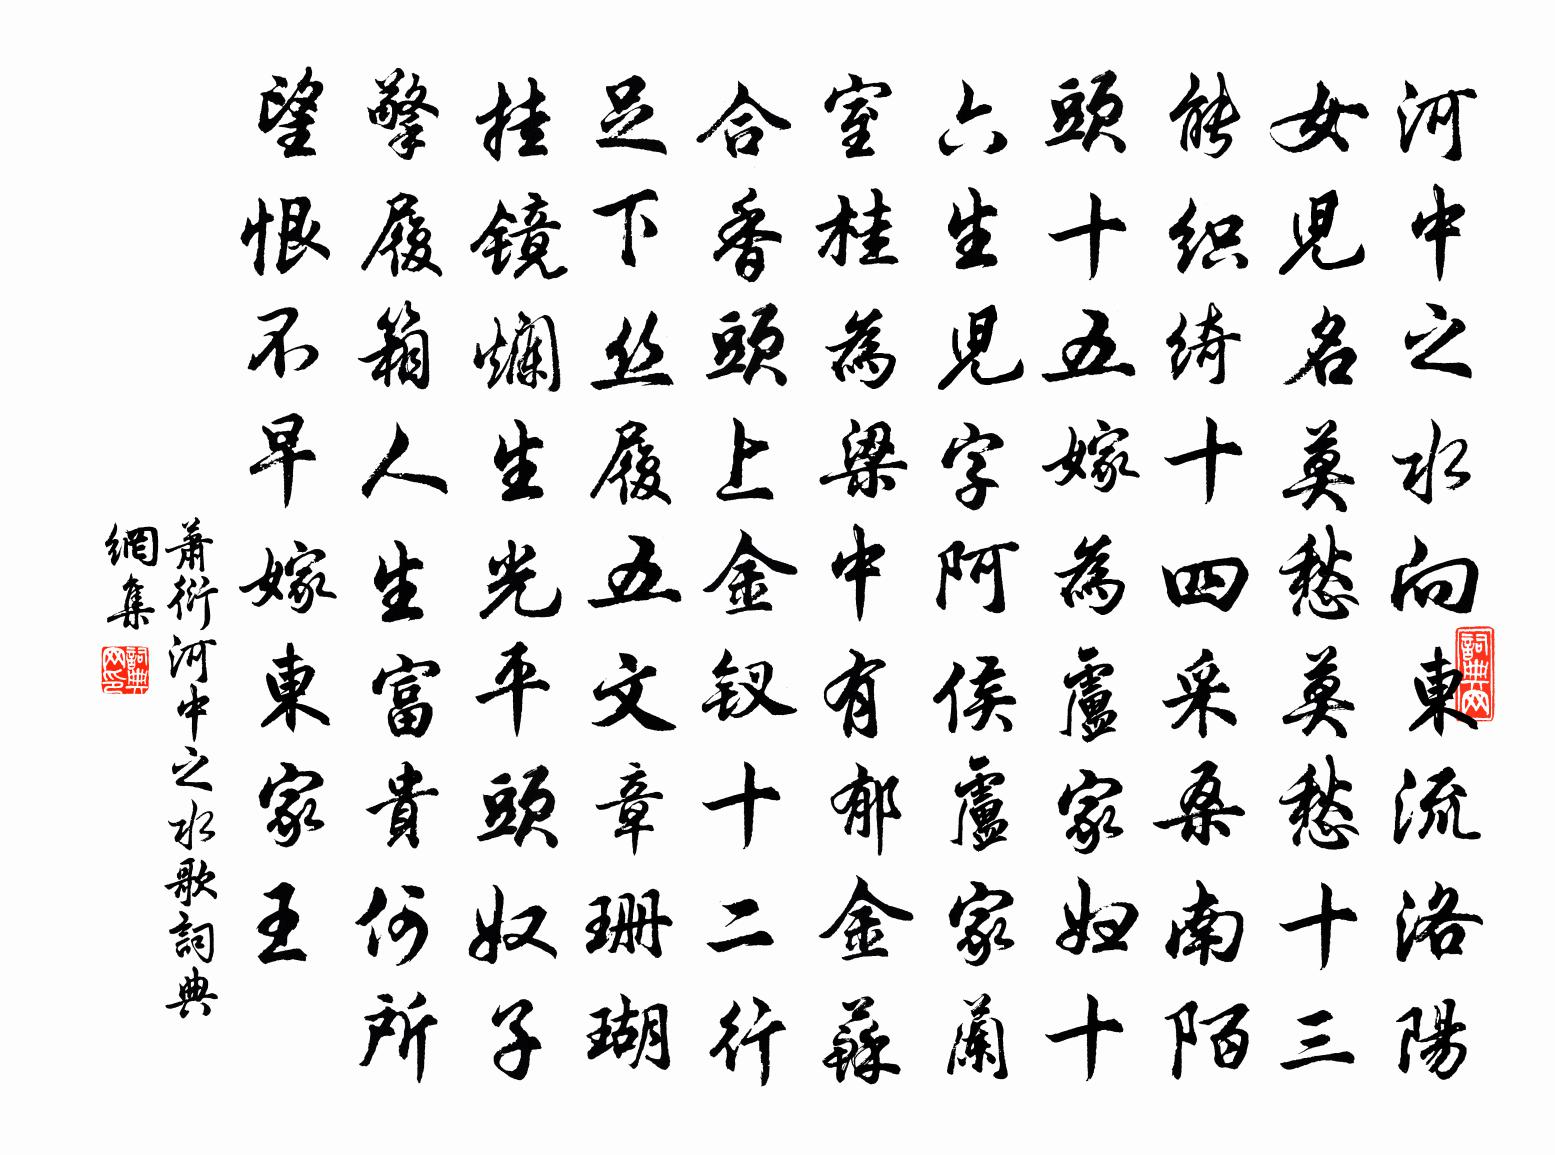 河中之水向東流洛陽
女児名莫愁莫愁十三
能织绮十四采桑南陌
頭十五嫁為盧家妇十
六生児字阿侯盧家蘭
室桂為梁中有郁金蘇
合香頭上金钗十二行
足下丝履五文章珊瑚
挂镜爛生光平頭奴子
擎履箱人生富貴何所
望恨不早嫁東家王
蕭衍河中之水歌詞典
網集
詞典网
詞典网印